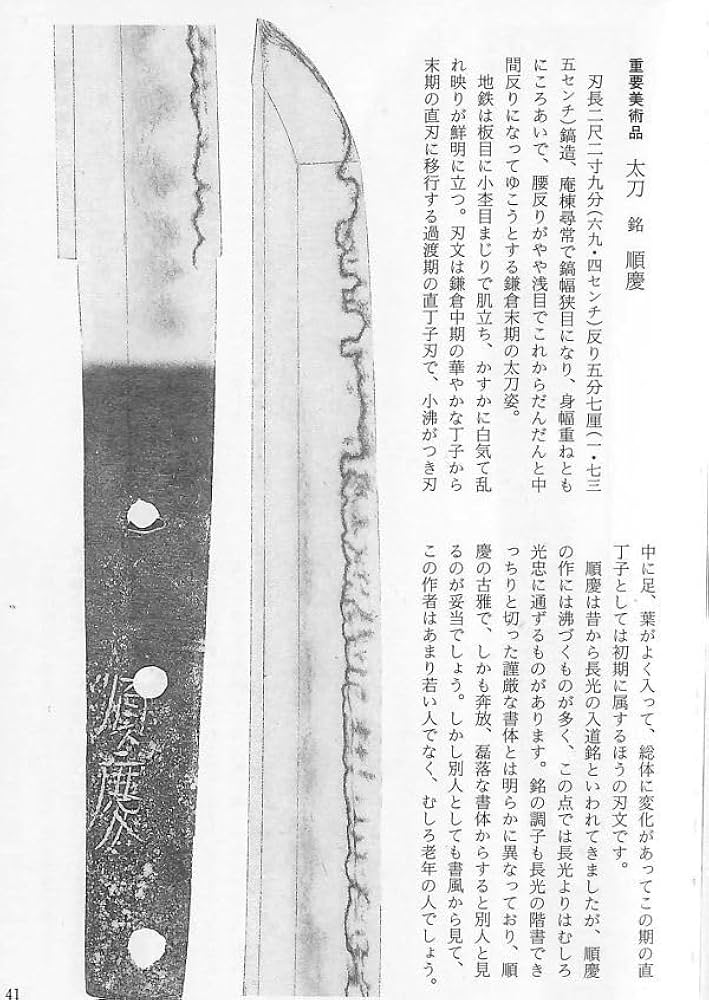 重要美術品　太刀　銘　順慶
刃長二尺二寸九分（六九・四センチ）反り五分七厘（一・七三
五センチ）鎬造、庵棟尋常で鎬幅狭目になり、身幅重ねとも
にころあいで、腰反りがやや浅目でこれからだんだんと中
間反りになってゆこうとする鎌倉末期の太刀姿。
地鉄は板目に小杢目まじりで肌立ち、かすかに白気て乱
れ映りが鮮明に立つ。刃文は鎌倉中期の華やかな丁子から
末期の直刃に移行する過渡期の直丁子刃で、小沸がつき刃
中に足、葉がよく入って、総体に変化があってこの期の直
丁子としては初期に属するほうの刃文です。
順慶は昔から長光の入道銘といわれてきましたが、順慶
の作には沸づくものが多く、この点では長光よりはむしろ
光忠に通ずるものがあります。銘の調子も長光の階書でき
っちりと切った謹厳な書体とは明らかに異なっており、順
慶の古雅で、しかも奔放、磊落な書体からすると別人と見
るのが妥当でしょう。しかし別人としても書風から見て、
この作者はあまり若い人でなく、むしろ老年の人でしょう。
順慶
41